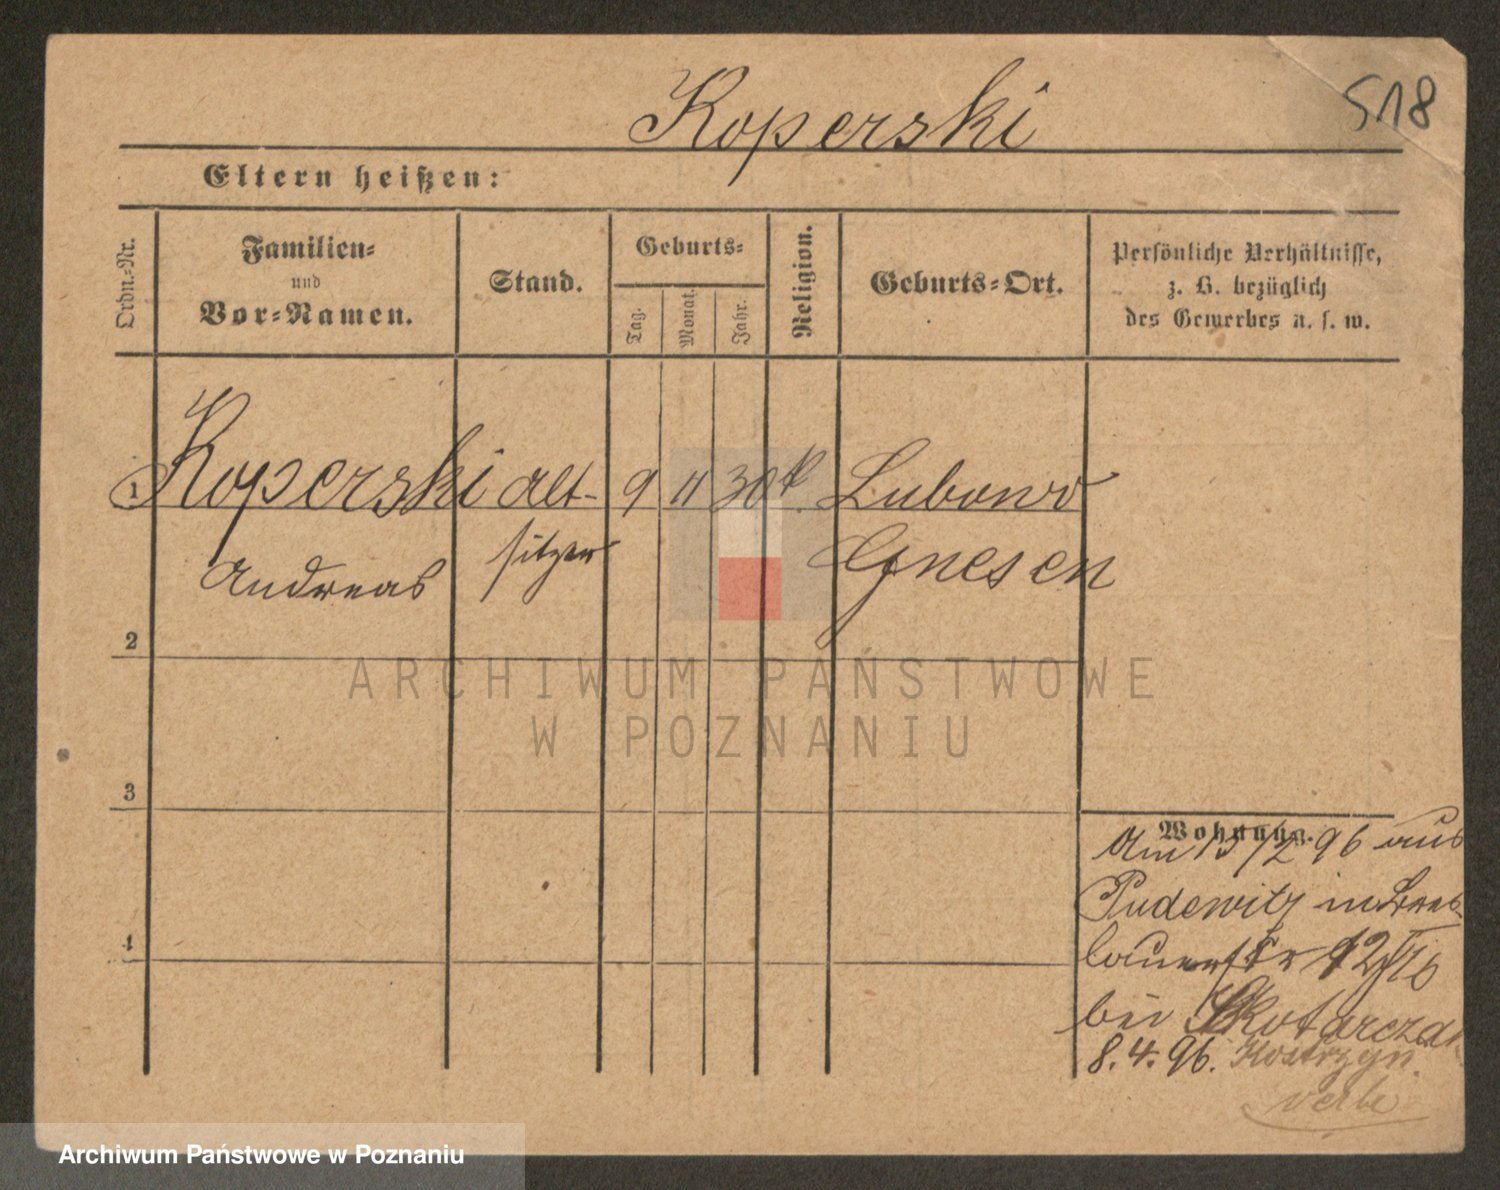 518
Koperski
Eltern heißen:
Ordn.-Nr.
Familien-
und
Vor-Namen.
Stand.
Geburts-
Tag.
Monat.
Jahr.
Religion.
Geburts-Ort.
Persönliche Verhältnisse,
z. B. bezüglich
des Gewerbes u. s. w.
1 Koperski Alt- 9 11 30 k. Lubowo
Andreas sitzer Gnesen
2
3
4
ARCHIWUM PAŃSTWOWE
W POZNANIU
Wohnung.
Am 15/2 96 aus
Pudewitz in Bres-
lauerstr 12
bei Skotarczak
8.4.96. Kostrzyn
Archiwum Państwowe w Poznaniu